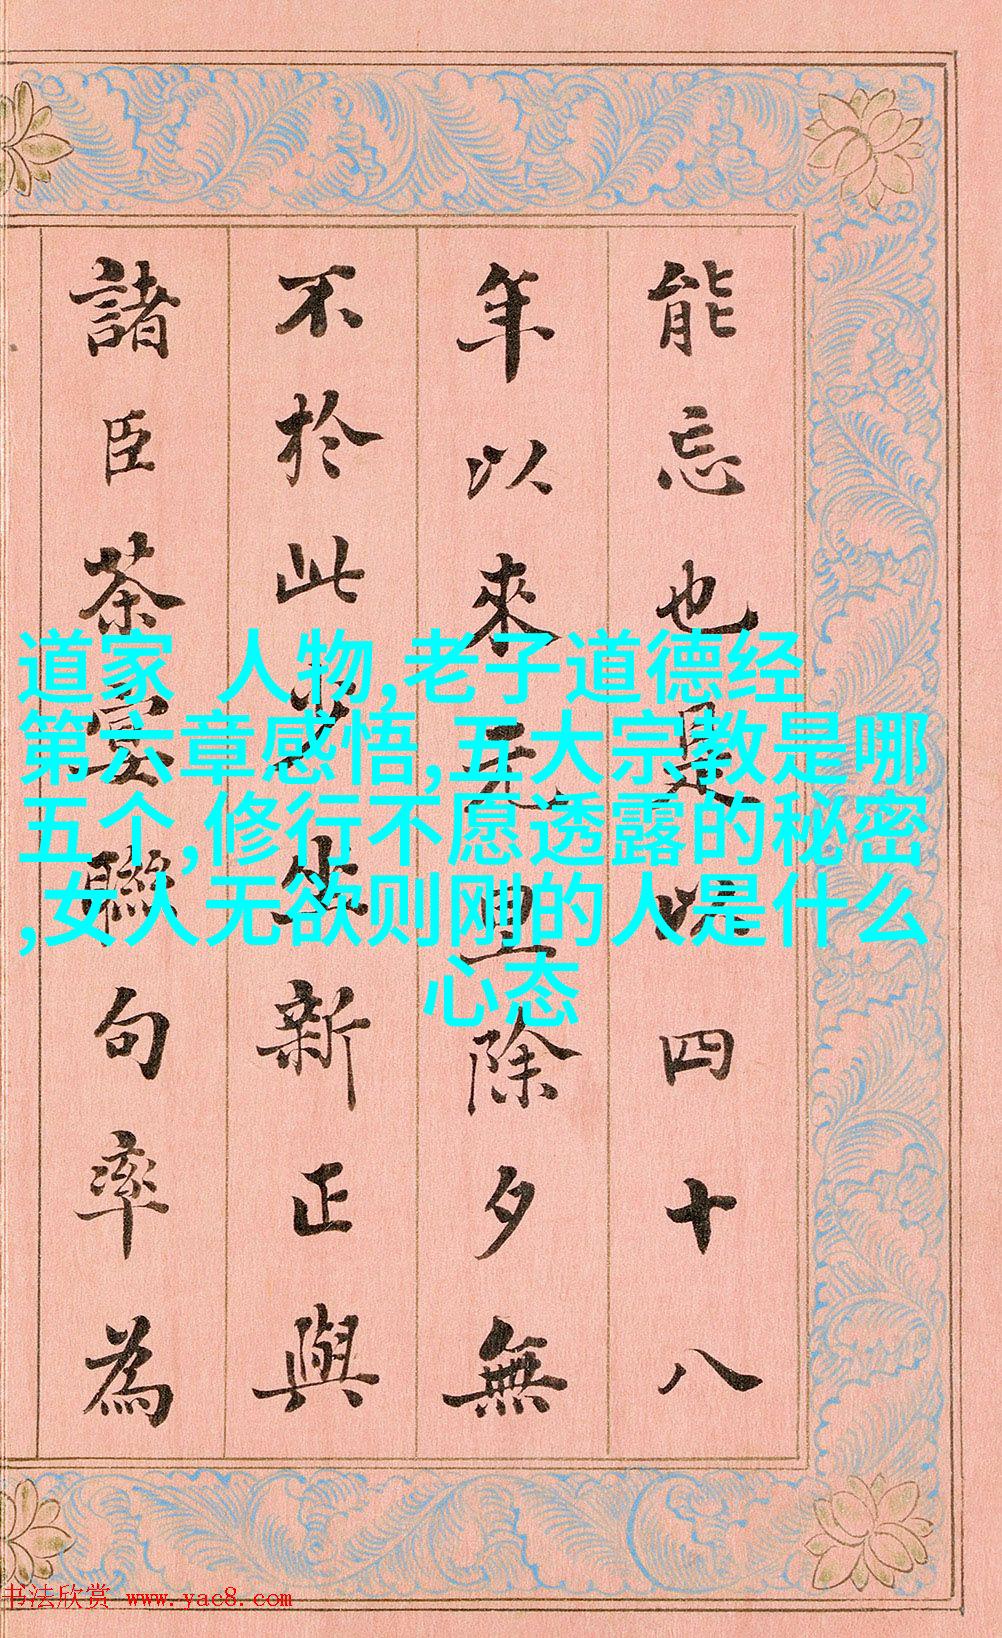 能忘也是以四十八
年以來元旦除夕無
不於此坐新正與
諸臣茶宴聯句率為
道家 人物,老子道德经
第六章感悟,五大宗教是哪
五个,修行不愿透露的秘密
,女人无欲则刚的人是什么
心态
书法欣赏 www.yac8.com